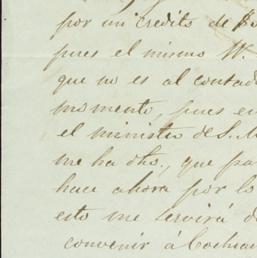 por un credito de
pues el mismo W.
que no es al contad
momento, pues en
el ministro de S. M
me ha dho., que pa
hace ahora por lo
esto me servirá d
convenir á Cochran